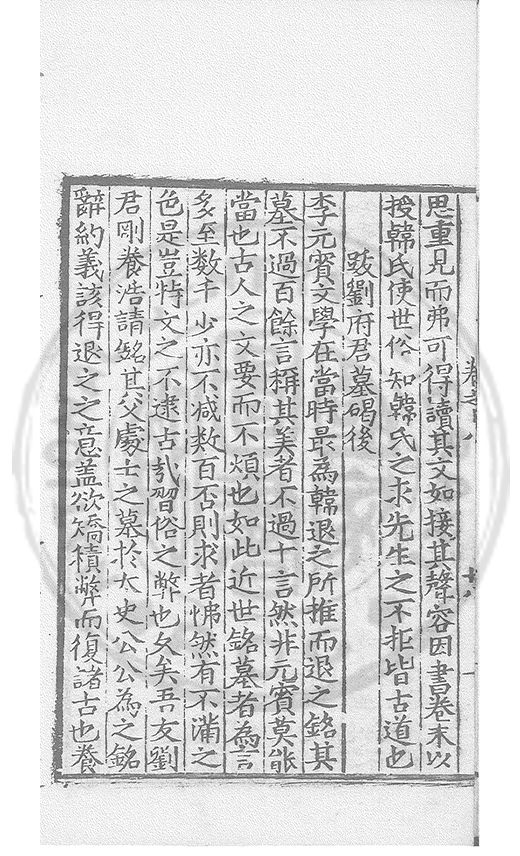 思重見而弗可得讀其文如接其聲容因書卷末以
授韓氏使世俗知韓氏之求先生之不拒皆古道也
跋劉府君墓碣後
李元賓文學在當時最為韓退之所推而退之銘其
墓不過百餘言稱其美者不過十言然非元賓莫能
當也古人之文要而不煩也如此近世銘墓者為言
多至数千少亦不减数百否則求者怫然有不滿之
色是豈特文之不逮古㢤習俗之弊也久矣吾友劉
君剛養浩請銘其父處士之墓於太史公公為之銘
辭約義該得退之之意盖欲矯積弊而復諸古也養